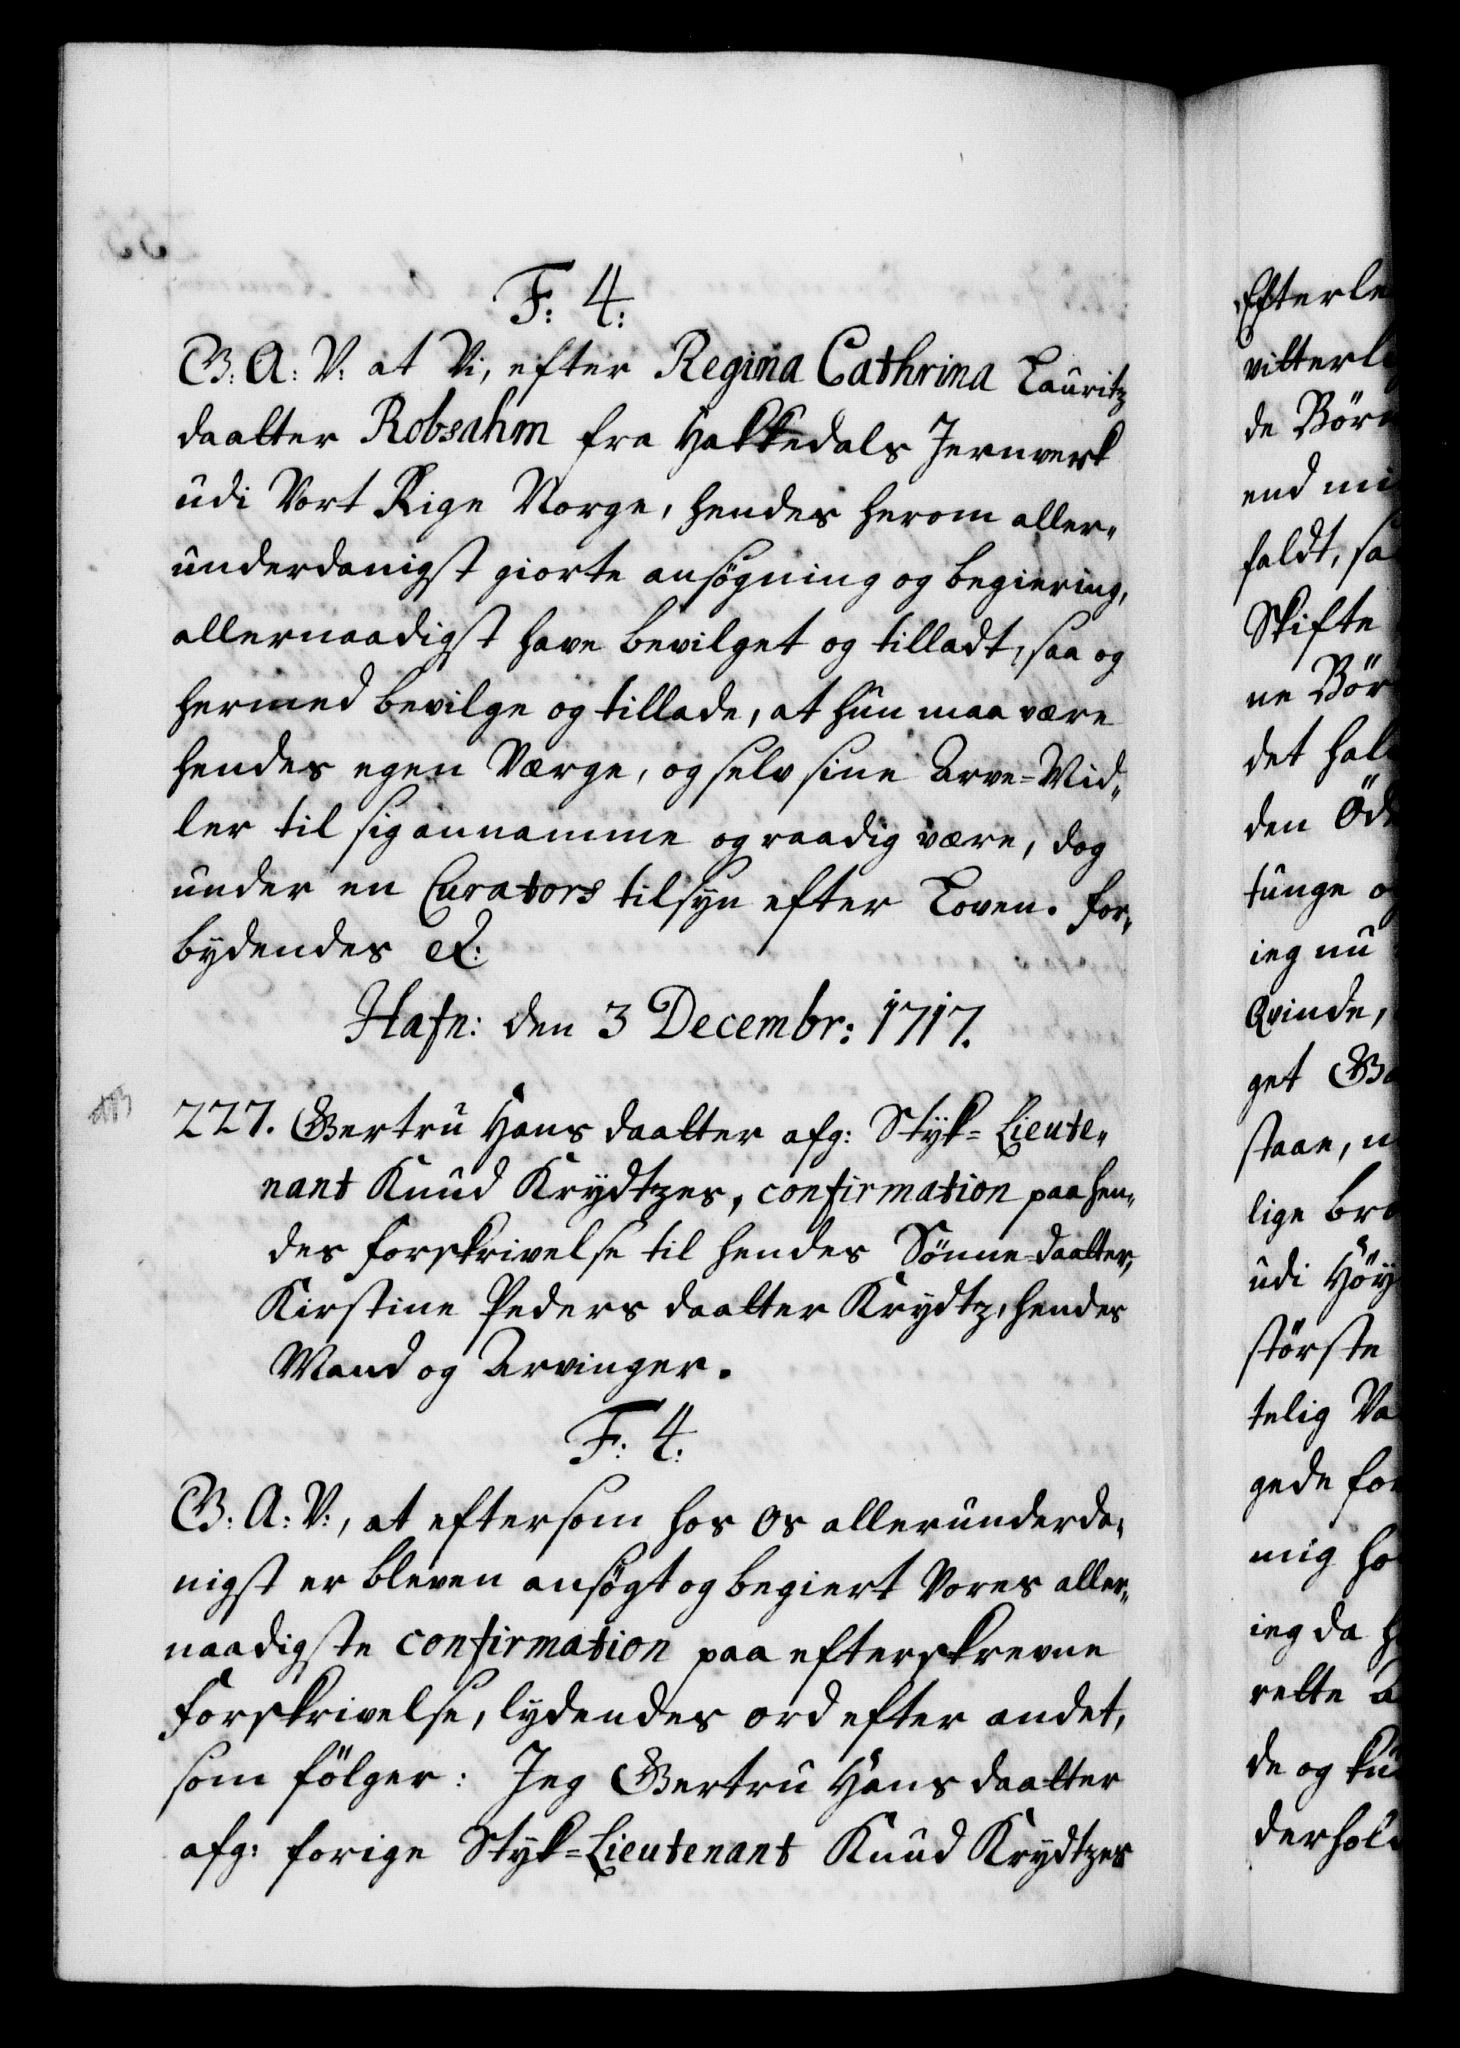 F: 4:
G: A: V: at Vi, efter Regina Cathrina Lauritz
daatter Robsahm fra Hakkedals Jernverk
udi Vort Rige Norge, hendes herom aller„
underdanigst giorte ansøgning og begiering,
allernaadigst have bevilget og tilladt, saa og
hermed bevilge og tillade, at hun maa være
hendes egen Værge, og selv sine Arve-Mid„
ler til sig annamme og raadig være, dog
under en Curators tilsyn efter Loven. For„
bydendes &:
Hafn: den 3 Decembr: 1717.
227. Gertru Hans daatter afg: Styk-Lieute„
nant Knud Krydtzes, confirmation paa hen„
des forskrivelse til hendes Sönne-daatter,
Kirstine Peders daatter Krydtz, hendes
Mand og Arvinger.
F: 4.
G. A: V:, at eftersom hos Os allerunderda„
nigst er bleven ansøgt og begiert Vores aller„
naadigste confirmation paa efterskrevne
Forskrivelse, lydendes ord efter andet,
som fölger: Jeg Gertru Hans daatter
afg: forige Styk-Lieutenant Knud Krydtzes
Efterle
vitterli
de Börn
end mi
faldt, sa
Skifte
ne Bör
det hal
den Öd
tunge o
ieg nu
Qvinde,
get Go
staae, n
lige bro
udi Höy
störste
telig Va
gede for
mig ho
ieg da h
rette A
de og ku
derhold